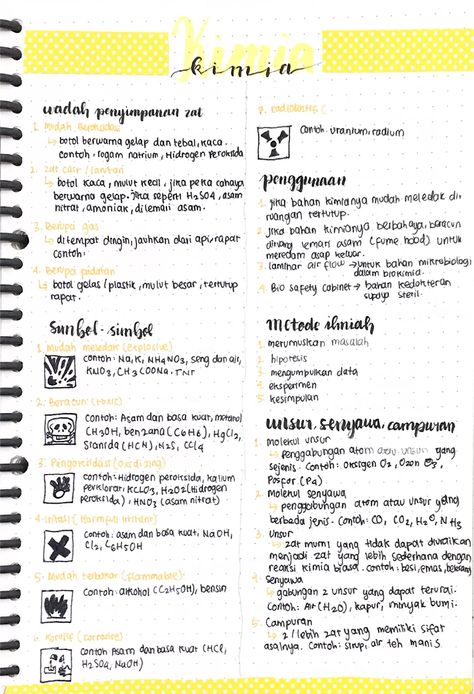 Kimia
kimia
wadah penyimpanan zat
1. Mudah Bereaksi
↳ botol berwarna gelap dan tebal, kaca.
contoh: logam natrium, Hidrogen Peroksida
2. zat cair / larutan
↳ botol kaca, mulut kecil, jika peka cahaya
berwarna gelap. Jika seperti H2SO4, asam
nitrat, amoniak, di lemari asam.
3. Berupa gas
↳ di tempat dingin, jauhkan dari api, rapat
contoh:
4. Berupa padatan
↳ botol gelas / plastik, mulut besar, tertutup
rapat.
Simbol-simbol
1. mudah meledak (explosive)
contoh: Na, K, NH4NO3, seng dan air,
KNO3, CH3COONa. TNT
2. Beracun (toxic)
Contoh: Asam dan basa kuat, metanol
CH3OH, benzana (C6H6), HgCl2,
Sianida (HCN), N2S, CCl4
3. Pengoksidasi (oxidizing)
contoh: Hidrogen peroksida, kalium
perklorat, KClO3, H2O2 (Hidrogen
Peroksida), HNO3 (asam nitrat)
4. Iritasi (Harmful irritant)
contoh: asam dan basa kuat, NaOH,
Cl2, C6H5OH
5. Mudah terbakar (flammable)
Contoh: alkohol (C2H5OH), bensin
6. Korosif (corrosive)
contoh Asam dan basa kuat (HCl,
H2SO4, NaOH)
7. radioaktif (
Contoh: Uranium, radium
penggunaan
1. jika bahan kimianya mudah meledak di
ruangan tertutup.
2. Jika bahan kimianya berbahaya, beracun
lemari asam (fume hood) untuk
meredam asap keluar.
3. laminar air flow → untuk bahan mikrobiologi
dalam biokimia.
4. Bio safety cabinet → bahan kedokteran
supaya steril.
Metode ilmiah
1. merumuskan masalah
2. hipotesis
3. mengumpulkan data
4. eksperimen
5. kesimpulan
unsur, senyawa, campuran
1. molekul unsur
↳ penggabungan atom atau unsur yang
sejenis. Contoh: oksigen O2, Ozon O3,
Posfor (P4)
2. molekul senyawa
↳ penggabungan atom atau unsur yang
berbeda jenis. Contoh: CO, CO2, H2O, NH3
3. Unsur
↳ zat murni yang tidak dapat diuraikan
menjadi zat yang lebih sederhana dengan
reaksi kimia biasa. contoh: besi, emas, belerang
4. senyawa
↳ gabungan 2 unsur yang dapat terurai.
Contoh: Air (H2O), kapur, minyak bumi.
5. Campuran
↳ 2 / lebih zat yang memiliki sifat
asalnya. Contoh: sirup, air teh manis